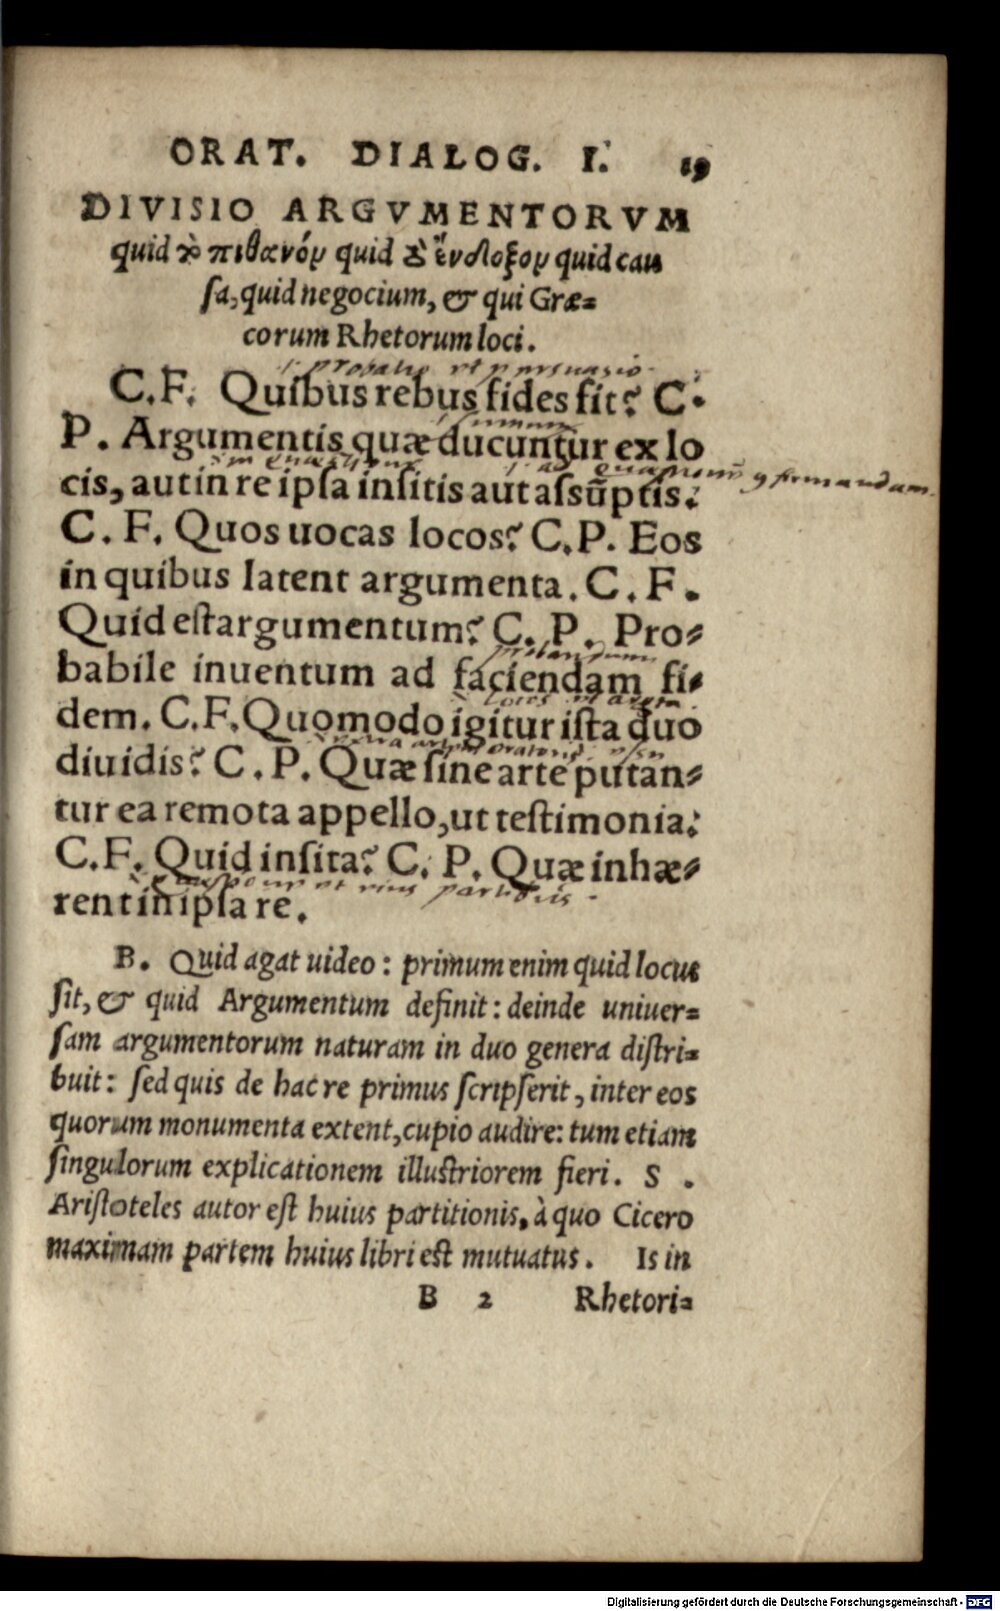 ORAT. DIALOG. I. 19
DIVISIO ARGVMENTORVM
quid τὸ πιθανόν quid & ἔνδοξον quid cau
sa, quid negocium, & qui Græ=
corum Rhetorum loci.
probatio vt persuasio.
C.F. Quibus rebus fides fit? C.
P. Argumentis quæ ducuntur ex lo
cis, aut in re ipsa insitis aut assũptis.
confirmandam.
C. F. Quos uocas locos? C.P. Eos
in quibus latent argumenta. C. F.
Quid est argumentum? C. P. Pro-
babile inuentum ad faciendam fi-
dem. C.F. Quomodo igitur ista duo
diuidis? C. P. Quæ sine arte putan-
tur ea remota appello, ut testimonia.
C.F. Quid insita? C. P. Quæ inhæ-
et eius partibus.
rent in ipsa re.
B. Quid agat uideo: primum enim quid locus
sit, & quid Argumentum definit: deinde uniuer=
sam argumentorum naturam in duo genera distri=
buit: sed quis de hac re primus scripserit, inter eos
quorum monumenta extent, cupio audire: tum etiam
singulorum explicationem illustriorem fieri. S .
Aristoteles autor est huius partitionis, à quo Cicero
maximam partem huius libri est mutuatus. Is in
B 2 Rhetori=
Digitalisierung gefördert durch die Deutsche Forschungsgemeinschaft - DFG